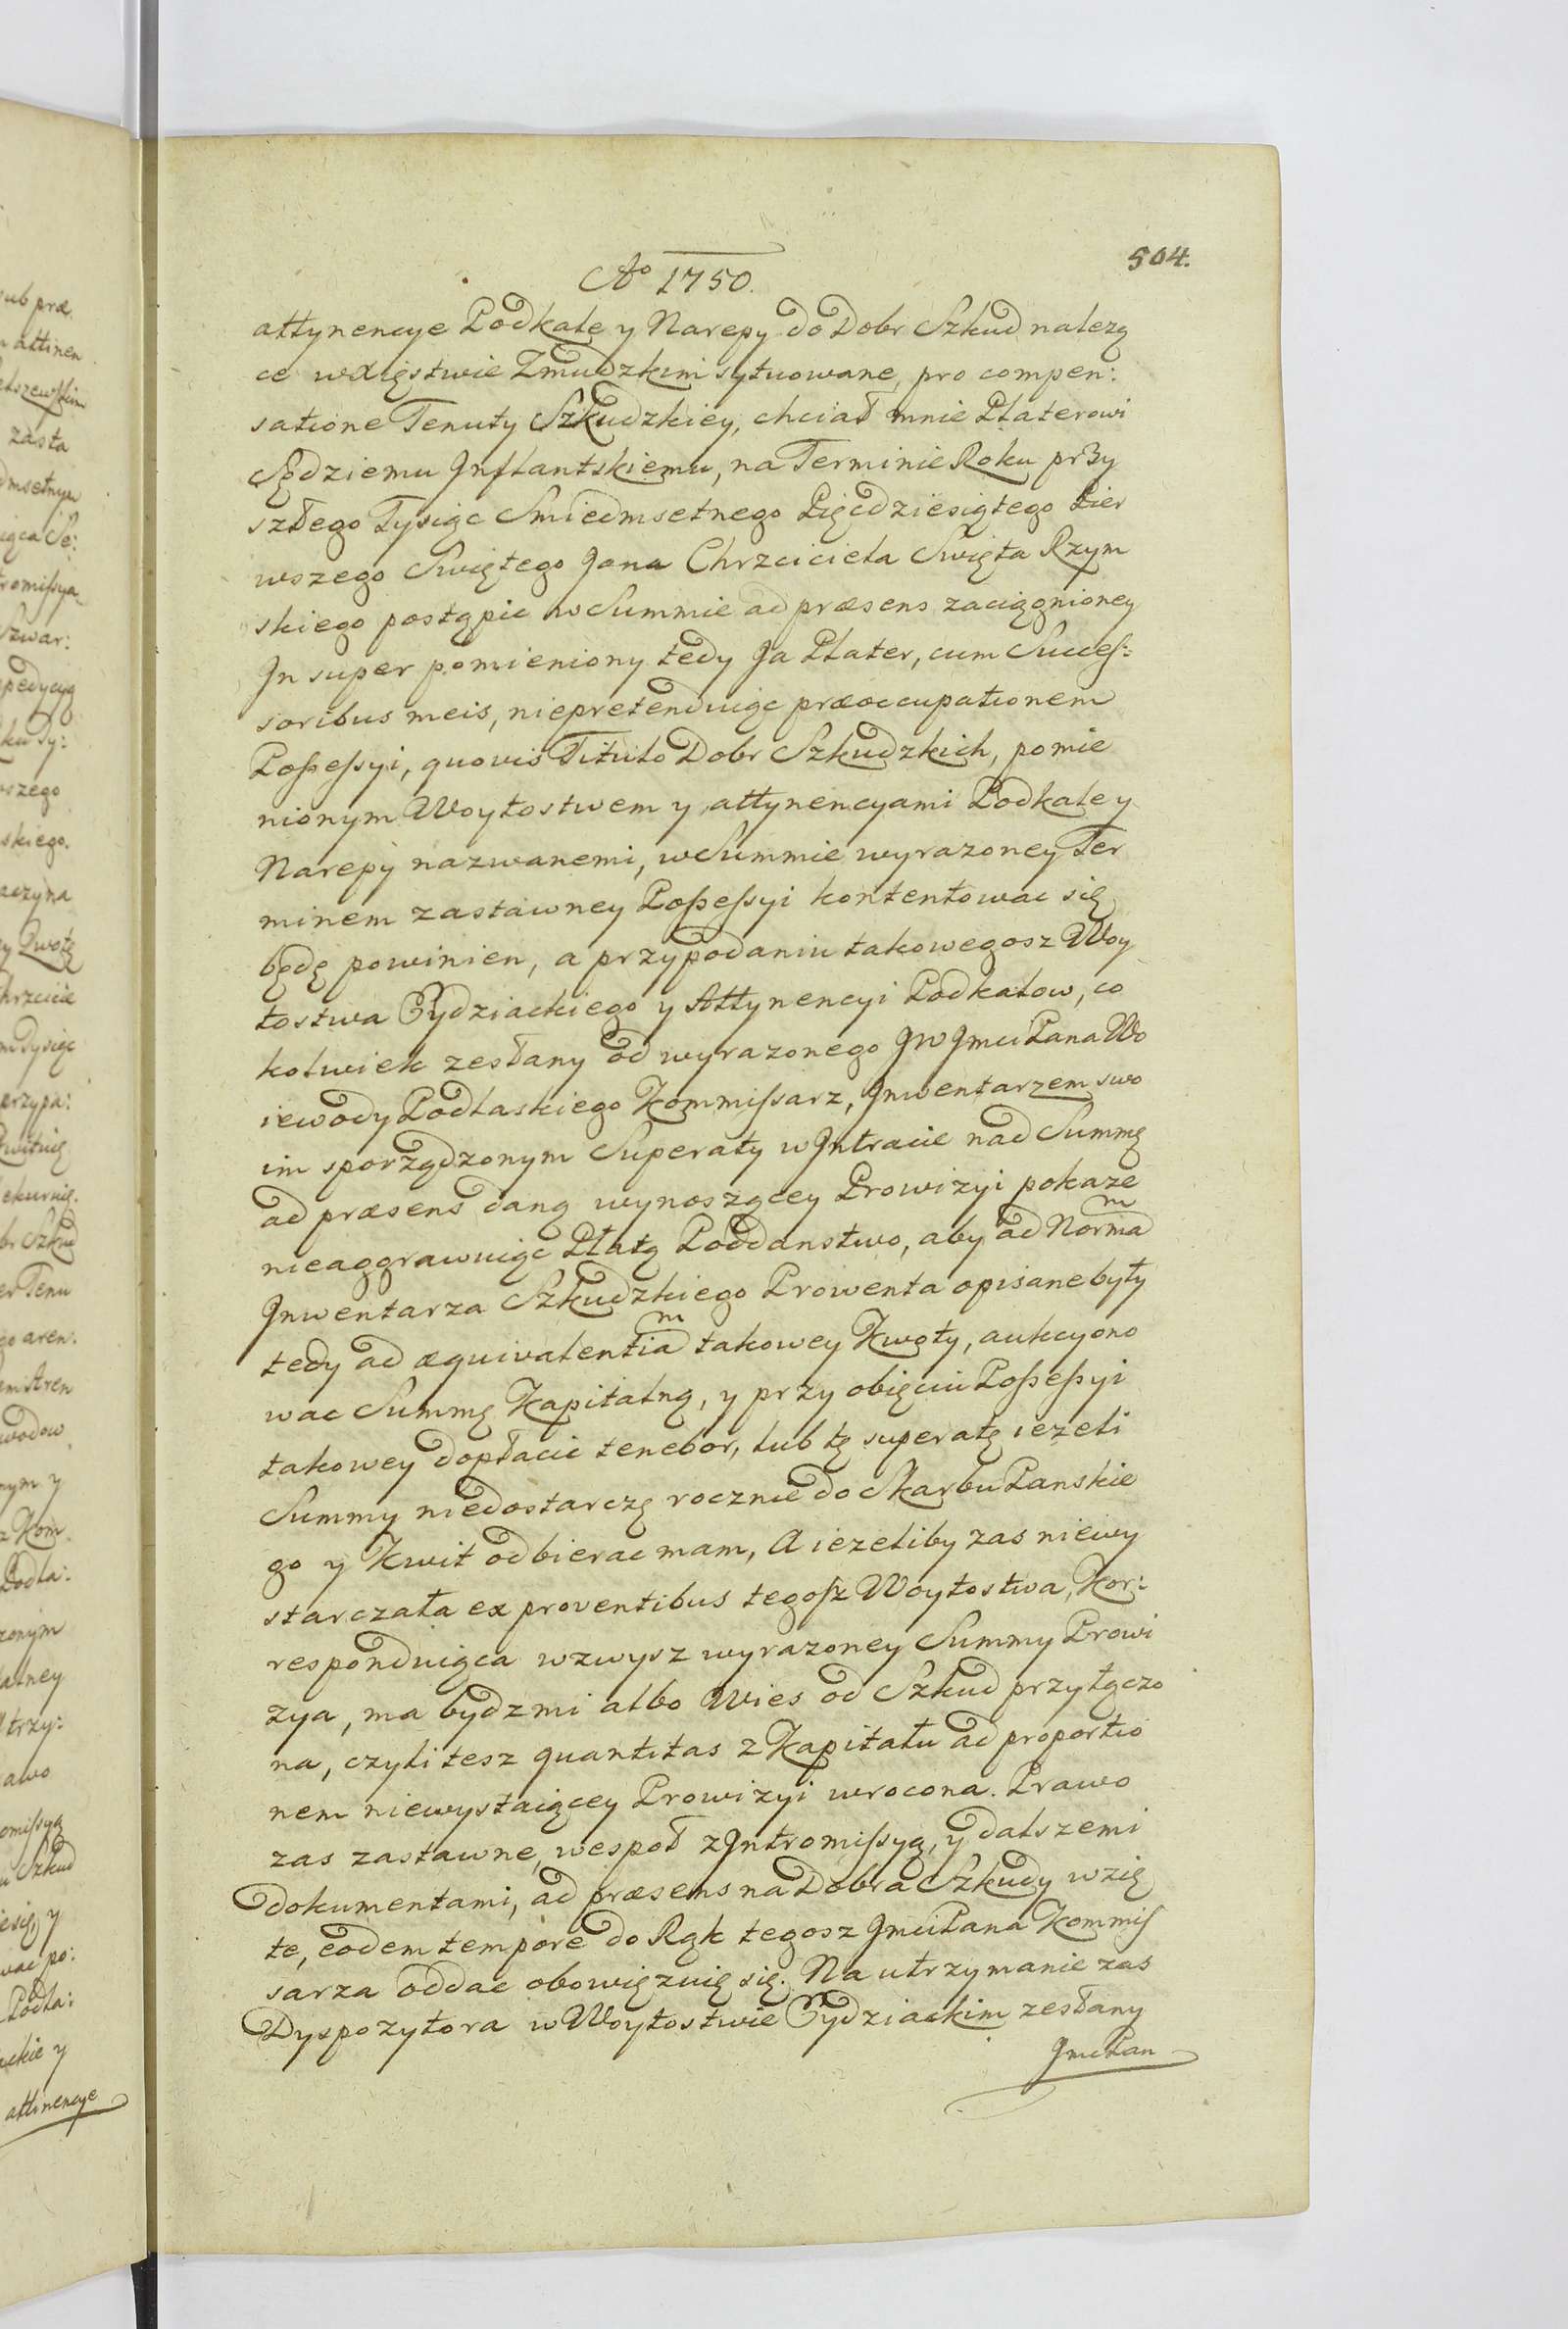 504.
Aº 1750.
attynencye Podkale y Narepy do Dobr Szkud nalezą
ce w Xięstwie Zmudzkim sytuowane, pro compen:
satione Tenuty Szkudzkiey, chciał mnie Platerowi
Sędziemu Jnflantskiemu, na Terminie Roku przy
szłego Tysiąc Smiedmsetnego Pięcdziesiątego Pier
wszego Swiętego Jana Chrzciciela Swięta Rzym
skiego postąpic w Summie ad præsens zaciągnioney
Jn super pomieniony tedy Ja Plater, cum Succes:
soribus meis, niepretenduiąc præoccupationem
Possessyi, quovis Titulo Dobr Szkudzkich, pomie
nionym Woytostwem y attynencyami Podkale y
Narepy nazwanemi, w Summie wyrazoney Ter
minem zastawney Possessyi kontentowac się
będę powinien, a przypodaniu takowegosz Woy
tostwa Pydziackiego y Attynencyi Podkalow, co
kolwiek zesłany od wyrazonego JW Jmci Pana Wo
iewody Podlaskiego Kommissarz, Jnwentarzem swo
im sporządzonym Superaty w Jntracie nad Summę
ad præsens daną wynoszącey Prowizyi pokaze
nieaggrawuiąc Płatą Poddanstwo, aby ad Norma^m
Jnwentarza Szkudzkiego Prowenta opisane były
tedy ad æquivalentia^m takowey Kwoty, aukcyono
wac Summę Kapitalną, y przy obięciu Possessyi
takowey dopłacic tenebor, lub tę superatę iezeli
Summy niedostarczę rocznie do Skarbu Panskie
go y Kwit odbierac mam, A iezeliby zas niewy
starczała ex proventibus tegosz Woytostwa, Kor:
responduiąca wzwysz wyrazoney Summy Prowi
zya, ma bydz mi albo Wies od Szkud przyłączo
na, czyli tesz quantitas z Kapitału ad proportio
nem niewystaiącey Prowizyi wrocona. Prawo
zas zastawne, wespoł z Jntromissyą, y dalszemi
dokumentami, ad præsens na Dobra Szkudy wzię
te, eodem tempore do Rąk tegosz Jmci Pana Kommis
sarza oddac obowięzuię się. Na utrzymanie zas
Dyspozytora w Woytostwie Pydziackim zesłany
Jmc Pan